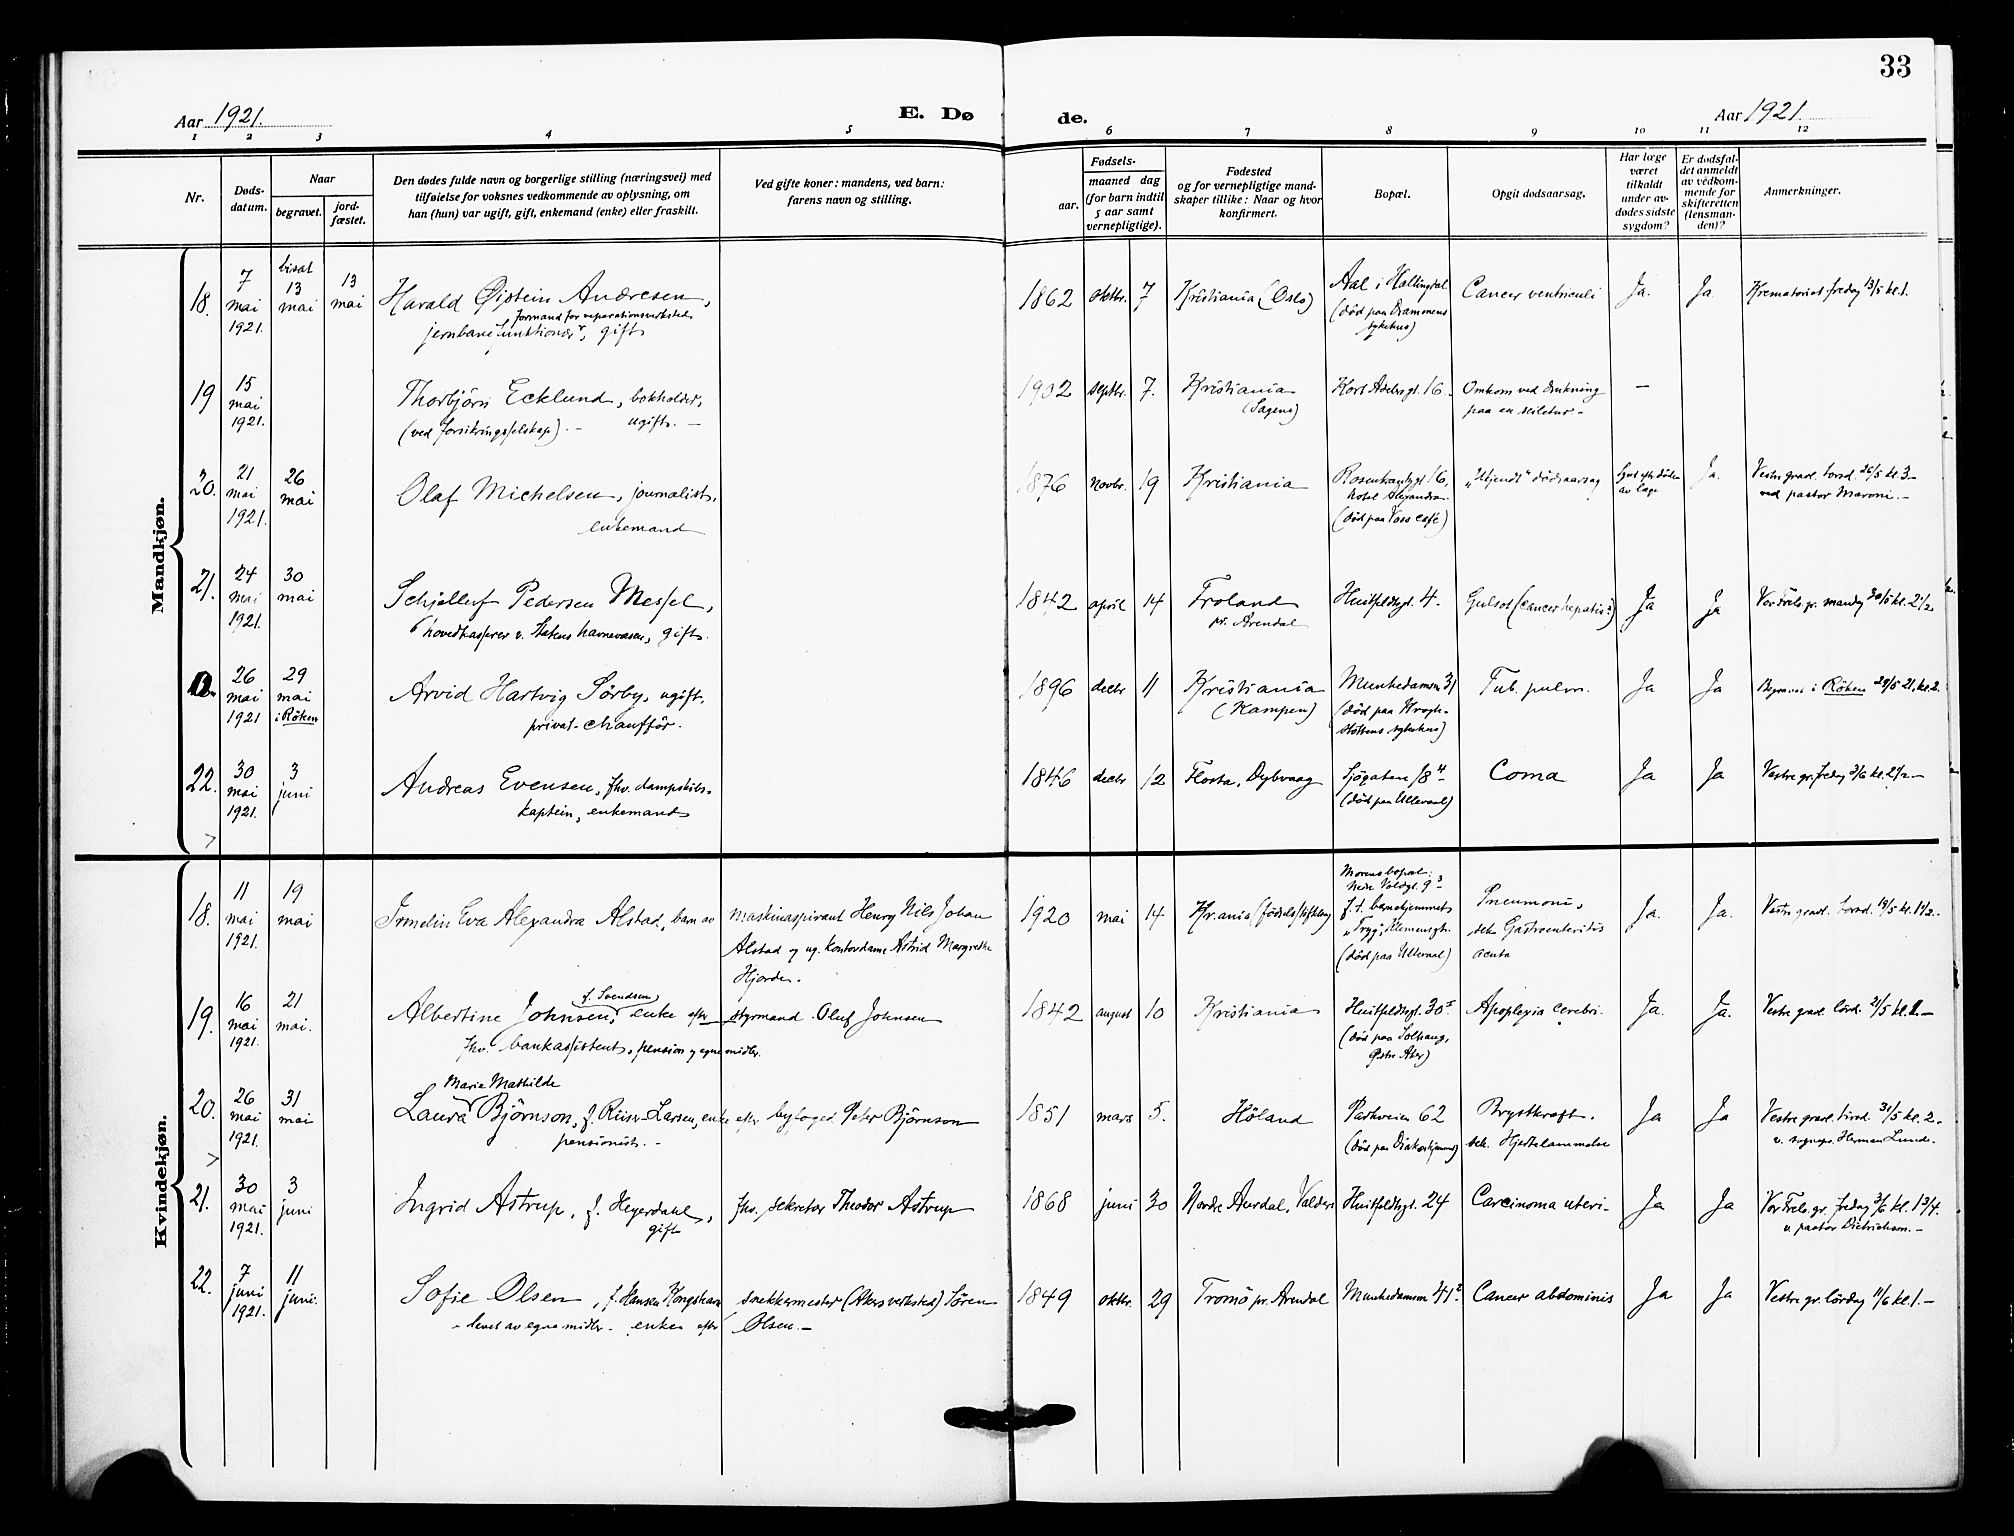 33
Aar 1921.
E. Dø de.
Aar 1921.
1 2 3 4 5 6 7 8 9 10 11 12
Nr.
Døds-
datum.
Naar
begravet.
jord-
fæstet.
Den dødes fulde navn og borgerlige stilling (næringsvei) med
tilføielse for voksnes vedkommende av oplysning, om
han (hun) var ugift, gift, enkemand (enke) eller fraskilt.
Ved gifte koner: mandens, ved barn:
farens navn og stilling.
Fødsels-
aar.
maaned dag
(for barn indtil
5 aar samt
vernepligtige).
Fødested
og for vernepligtige mand-
skaper tillike: Naar og hvor
konfirmert.
Bopæl.
Opgit dødsaarsag.
Har læge
været
tilkaldt
under av-
dødes sidste
sygdom?
Er dødsfal-
det anmeldt
av vedkom-
mende for
skifteretten
(lensman-
den)?
Anmerkninger.
Mandkjøn.
18.
7
mai
1921.
bisat
13
mai
13
mai
Harald Øistein Andresen,
formand for reparationsverksted
jernbanefunktionær, gift
1862 oktbr. 7
Kristiania (Oslo)
Aal i Hallingdal
(død paa Drammens
sykehus)
Cancer ventriculi
Ja.
Ja
Krematoriet fredag 13/5 kl. 1.
19
15
mai
1921.
Thorbjörn Ecklund, bokholder,
(ved forsikringsselskap). - ugift. -
1902 septbr. 7.
Kristiania
(Sagene)
Kort Adelersgt. 16.
Omkom ved drukning
paa en seiltur -
-
20.
21
mai
1921.
26
mai
Olaf Michelsen, journalist,
enkemand
1876 novbr. 19
Kristiania
Rosenkrantzgt. 16,
hotel Alexandra.
(død paa Voss café)
"Ukjendt" dödsaarsag
Synt efter döden
av læge
Ja.
Vestre gravl. torsd. 26/5 kl. 3 -
ved pastor Maroni. -
21.
24
mai
1921.
30
mai
Schjelluf Pedersen Messel,
hovedkasserer v. Statens havnevæsen, gift.
1842 april 14
Froland
pr. Arendal
Huitfeldtsgt. 4.
Gulsot (cancer hepatis?)
Ja
Ja
Vor Frels. gr. mandag 30/5 kl. 2 1/2
0.
26
mai
1921
29
mai
i Röken
Arvid Hartvig Sörby, ugift.
privat-chaufför.
1896 decbr 11
Kristiania
(Kampen)
Munkedamsvn 31
(död paa Krogh-
stöttens sykehus)
Tub. pulm.
Ja
Ja
Begravet i Röken 29/5 21, kl. 2.
22.
30
mai
1921.
3
juni
Andreas Evensen, fhv. dampskibs-
kaptein, enkemand
1846 decbr 12
Flosta, Dybvaag
Sjögaten 18 4
(död paa Ullevaal)
Coma
Ja
Ja
Vestre gr. fredag 3/6 kl. 2 1/2 -
Kvindekjøn.
18.
11
mai
1921.
19
mai
Irmelin Eva Alexandra Alstad, barn av
maskinaspirant Henry Nils Johan
Alstad og ug. kontordame Astrid Margrethe
Hjorde.
1920 mai 14
Kr.ania (fødselsstiftelsen)
Morens bopæl:
Nedr Voldgt. 9 3
f. t. barnehjemmet
"Tryg", Klemensgt.
(död paa Ullevaal)
Pneumoni,
sek. Gastroenteritis
acuta
Ja.
Ja.
Vestre gravl. torsd. 19/5 kl. 1 1/2 -
19.
16
mai
1921.
21
mai.
f. Svendsen,
Albertine Johnsen, enke efter styrmand Oluf Johnsen
fhv. bankassistent, pension og egne midler.
1842 august 10
Kristiania
Huitfeldtsgt. 30 I
(död paa Solhaug,
Østre Aker)
Apoplexia cerebri.
Ja.
Ja.
Vestre gravl. lörd. 21/5 kl. 1. -
20.
26
mai
1921.
31
mai
Marie Mathilde
Laura Björnson, f. Riiser-Larsen, enke efter byfoged Peter Björnson
pensionist. -
1851 mars 5.
Höland
Parkveien 62
(död paa Diakonhjemmet)
Brystkræft.
sek. Hjertelammelse
Ja
Ja
Vestre gravl. tirsd. 31/5 kl. 2 -
v. sognepr. Herman Lunde.
21.
30
mai
1921.
3
juni
Ingrid Astrup, f. Heyerdahl,
gift
fhv. sekretær Theodor Astrup
1868 juni 30
Nordre Aurdal, Valders
Huitfeldtsgt. 24
Carcinoma uteri -
Ja
Ja
Vor Frels. gr. fredag 3/6 kl. 1 3/4.
v. pastor Dietrichson. -
22.
7
juni
1921.
11
juni.
Sofie Olsen, f. Hansen Kongshavn
- levet av egne midler - enke efter
snekkermester (Akers verksted) Sören
Olsen. -
1849 oktbr. 29
Tromö pr. Arendal
Munkedamsvn 41 2.
Cancer abdominis
Ja
Ja
Vestre gr. lördag 11/6 kl. 1. -